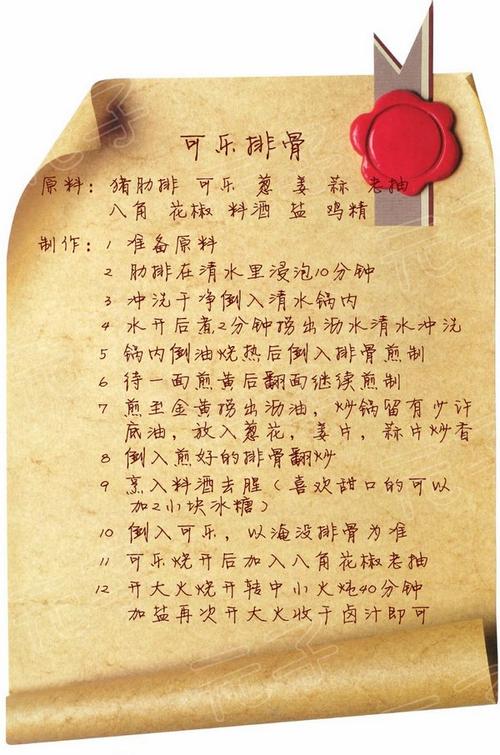 可乐排骨
原料：猪肋排 可乐 葱 姜 蒜 老抽
八角 花椒 料酒 盐 鸡精
制作：1 准备原料
2 肋排在清水里浸泡10分钟
3 冲洗干净倒入清水锅内
4 水开后煮2分钟捞出沥水清水冲洗
5 锅内倒油烧热后倒入排骨煎制
6 待一面煎黄后翻面继续煎制
7 煎至金黄捞出沥油，炒锅留有少许
底油，放入葱花，姜片，蒜片炒香
8 倒入煎好的排骨翻炒
9 烹入料酒去腥（喜欢甜口的可以
加2小块冰糖）
10 倒入可乐，以淹没排骨为准
11 可乐烧开后加入八角花椒老抽
12 开大火烧开转中小火炖40分钟
加盐再次开大火收干卤汁即可